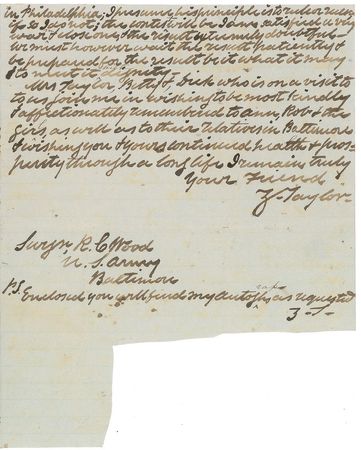 in Philadelphia, I presume his principle is to rule or
up to Inst. the contest will be I am satisfied a very
near & close one, & the result extremely doubtful
we must however wait the result patiently &
be prepared for the result be it what it may
to meet it dignity
Mrs Taylor, Betty & Dick who is on a visit to
to us join me in wishing to be most kindly
& affectionately remembered to Ann, Rob & the
girls as well as to their relatives in Baltimore
& wishing you & yours continued health & pros-
perity through a long life I remain truly
Your Friend
Z. Taylor
Surgn R. C Wood
U. S. army
Baltimore
P.S. Enclosed you will find my autographs as requested
Z. T.